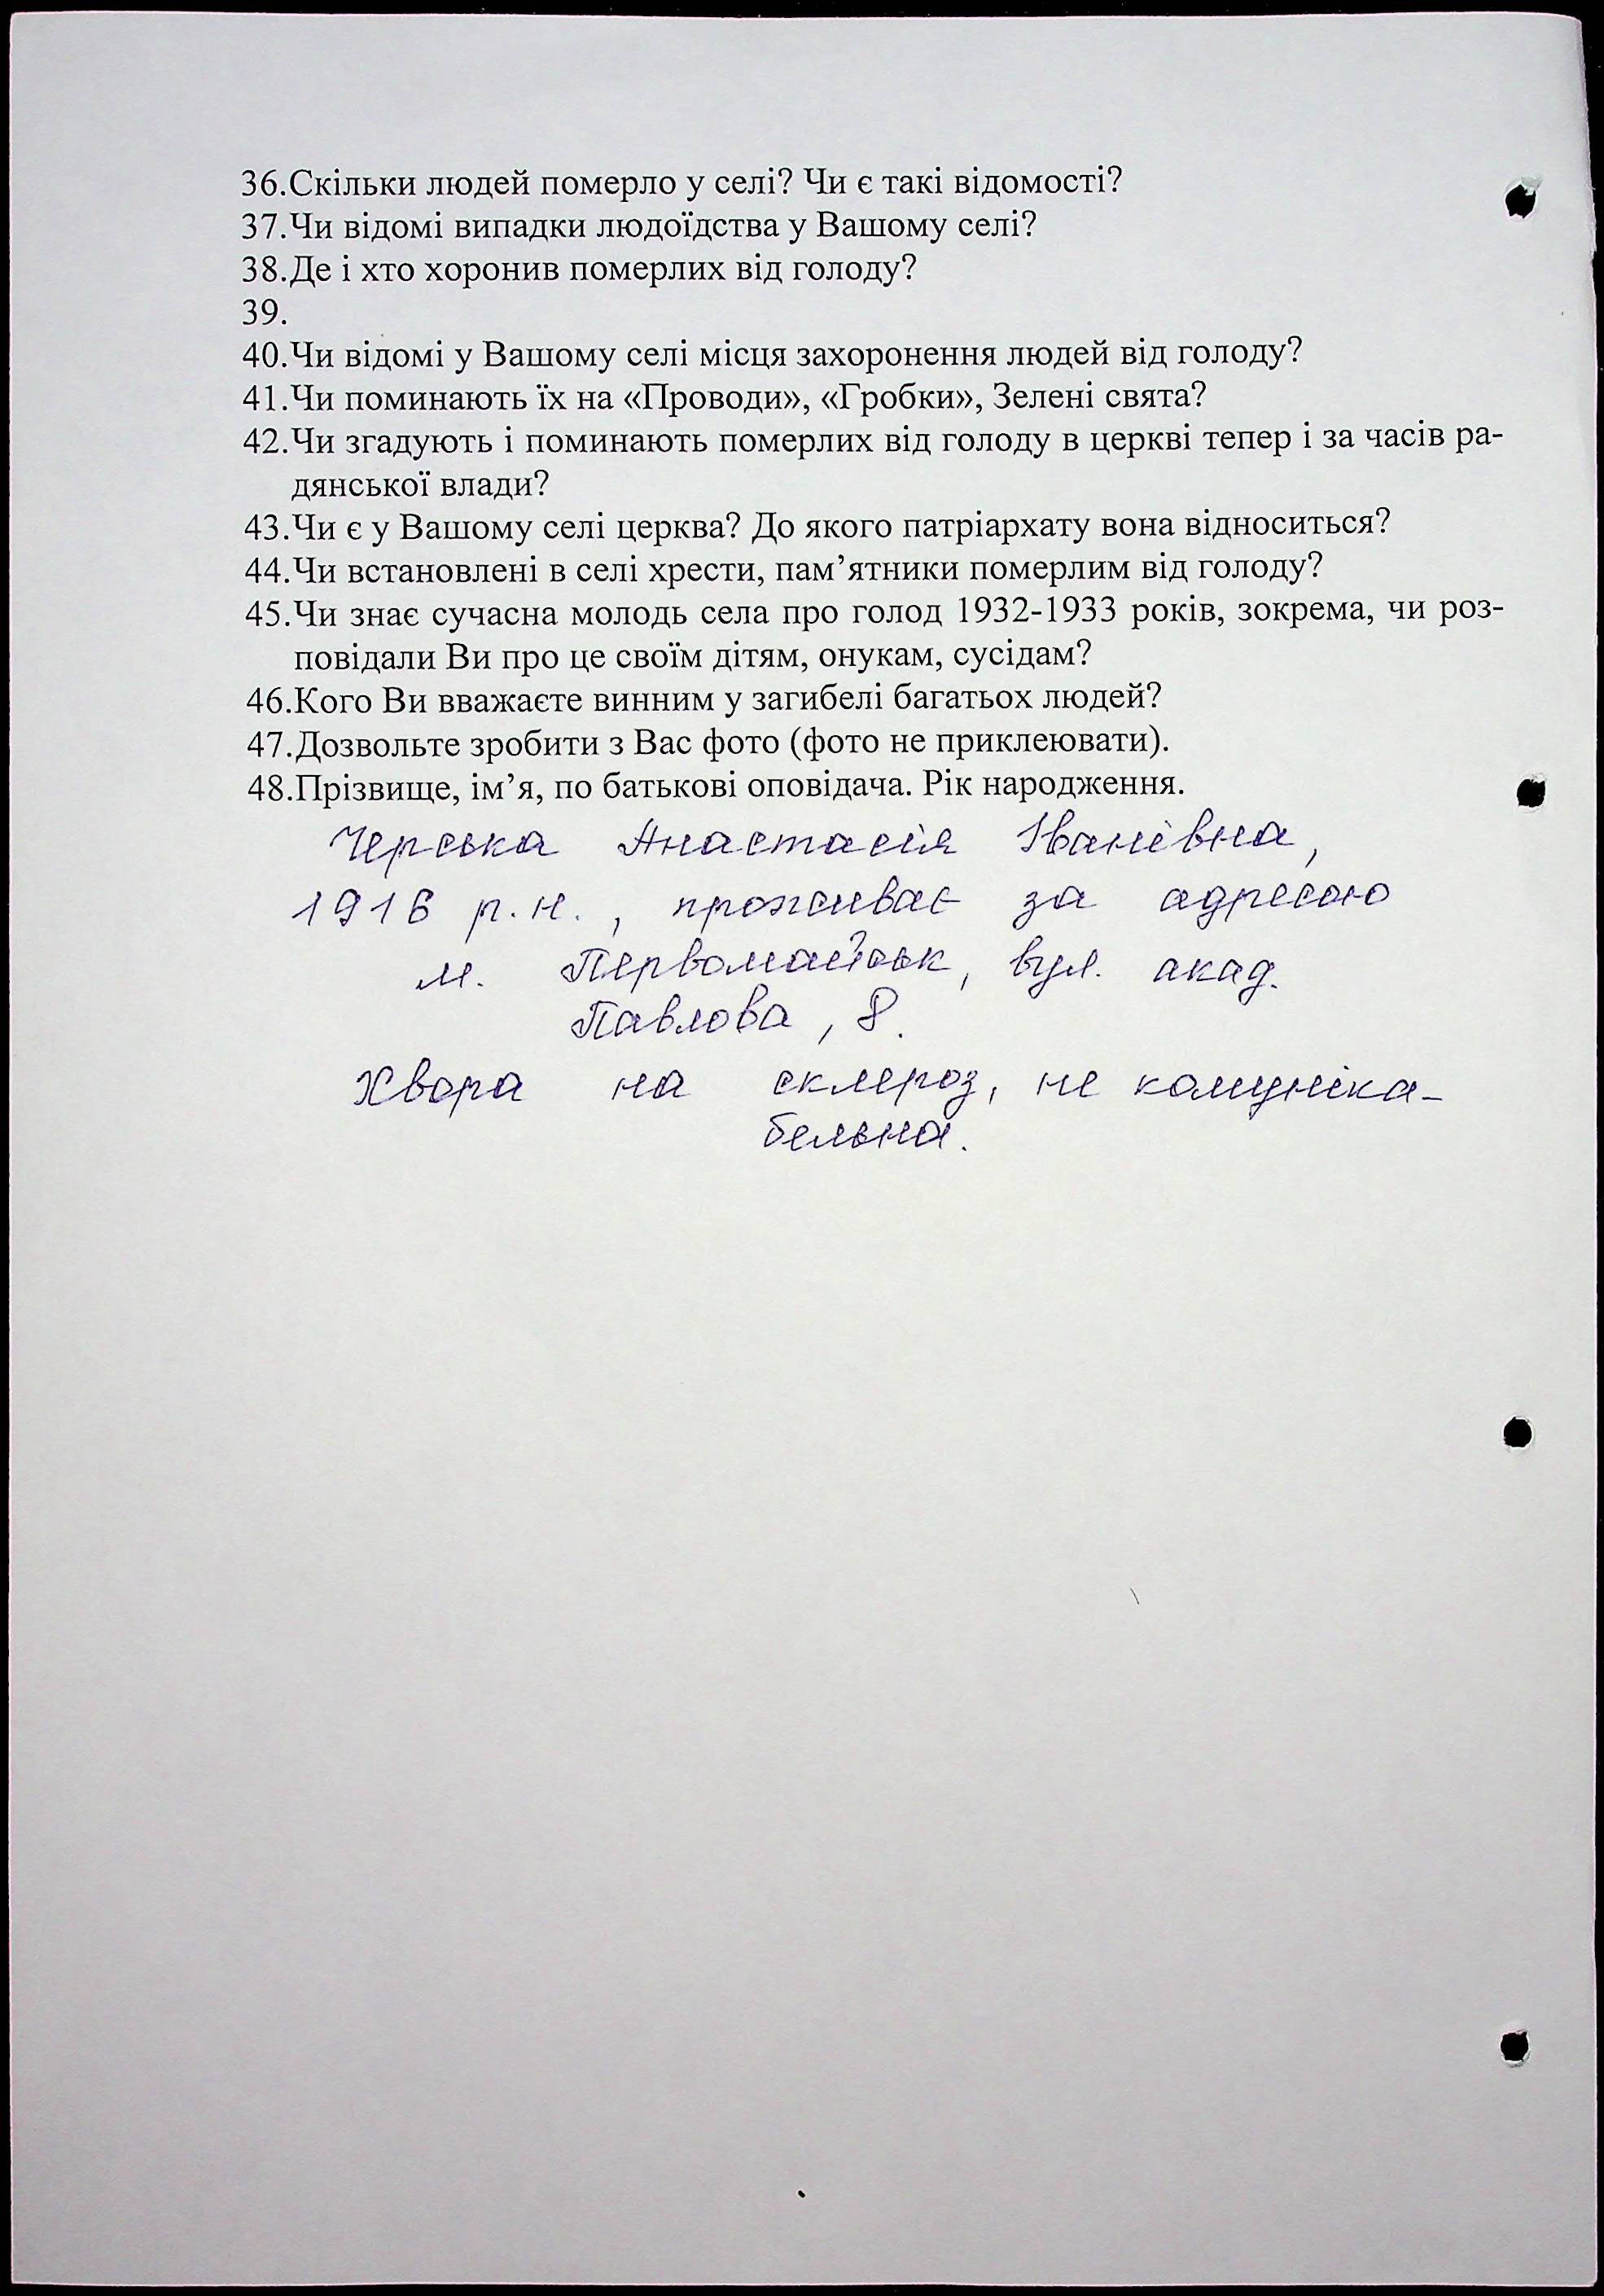 36.Скільки людей померло у селі? Чи є такі відомості?
37.Чи відомі випадки людоїдства у Вашому селі?
38.Де і хто хоронив померлих від голоду?
39.
40.Чи відомі у Вашому селі місця захоронення людей від голоду?
41.Чи поминають їх на «Проводи», «Гробки», Зелені свята?
42.Чи згадують і поминають померлих від голоду в церкві тепер і за часів ра-
дянської влади?
43.Чи є у Вашому селі церква? До якого патріархату вона відноситься?
44.Чи встановлені в селі хрести, пам’ятники померлим від голоду?
45.Чи знає сучасна молодь села про голод 1932-1933 років, зокрема, чи роз-
повідали Ви про це своїм дітям, онукам, сусідам?
46.Кого Ви вважаєте винним у загибелі багатьох людей?
47.Дозвольте зробити з Вас фото (фото не приклеювати).
48.Прізвище, ім’я, по батькові оповідача. Рік народження.
Черська Анастасія Іванівна,
1916 р.н., проживає за адресою
м. Первомайськ, вул. акад.
Павлова, 8.
Хвора на склероз, не комуніка-
бельна.